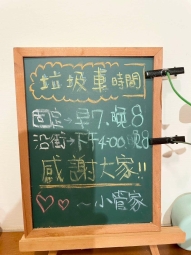 垃圾車時間
固定→早7.晚8
沿街→下午4:00.晚8
感謝大家!!
♡♡~小管家